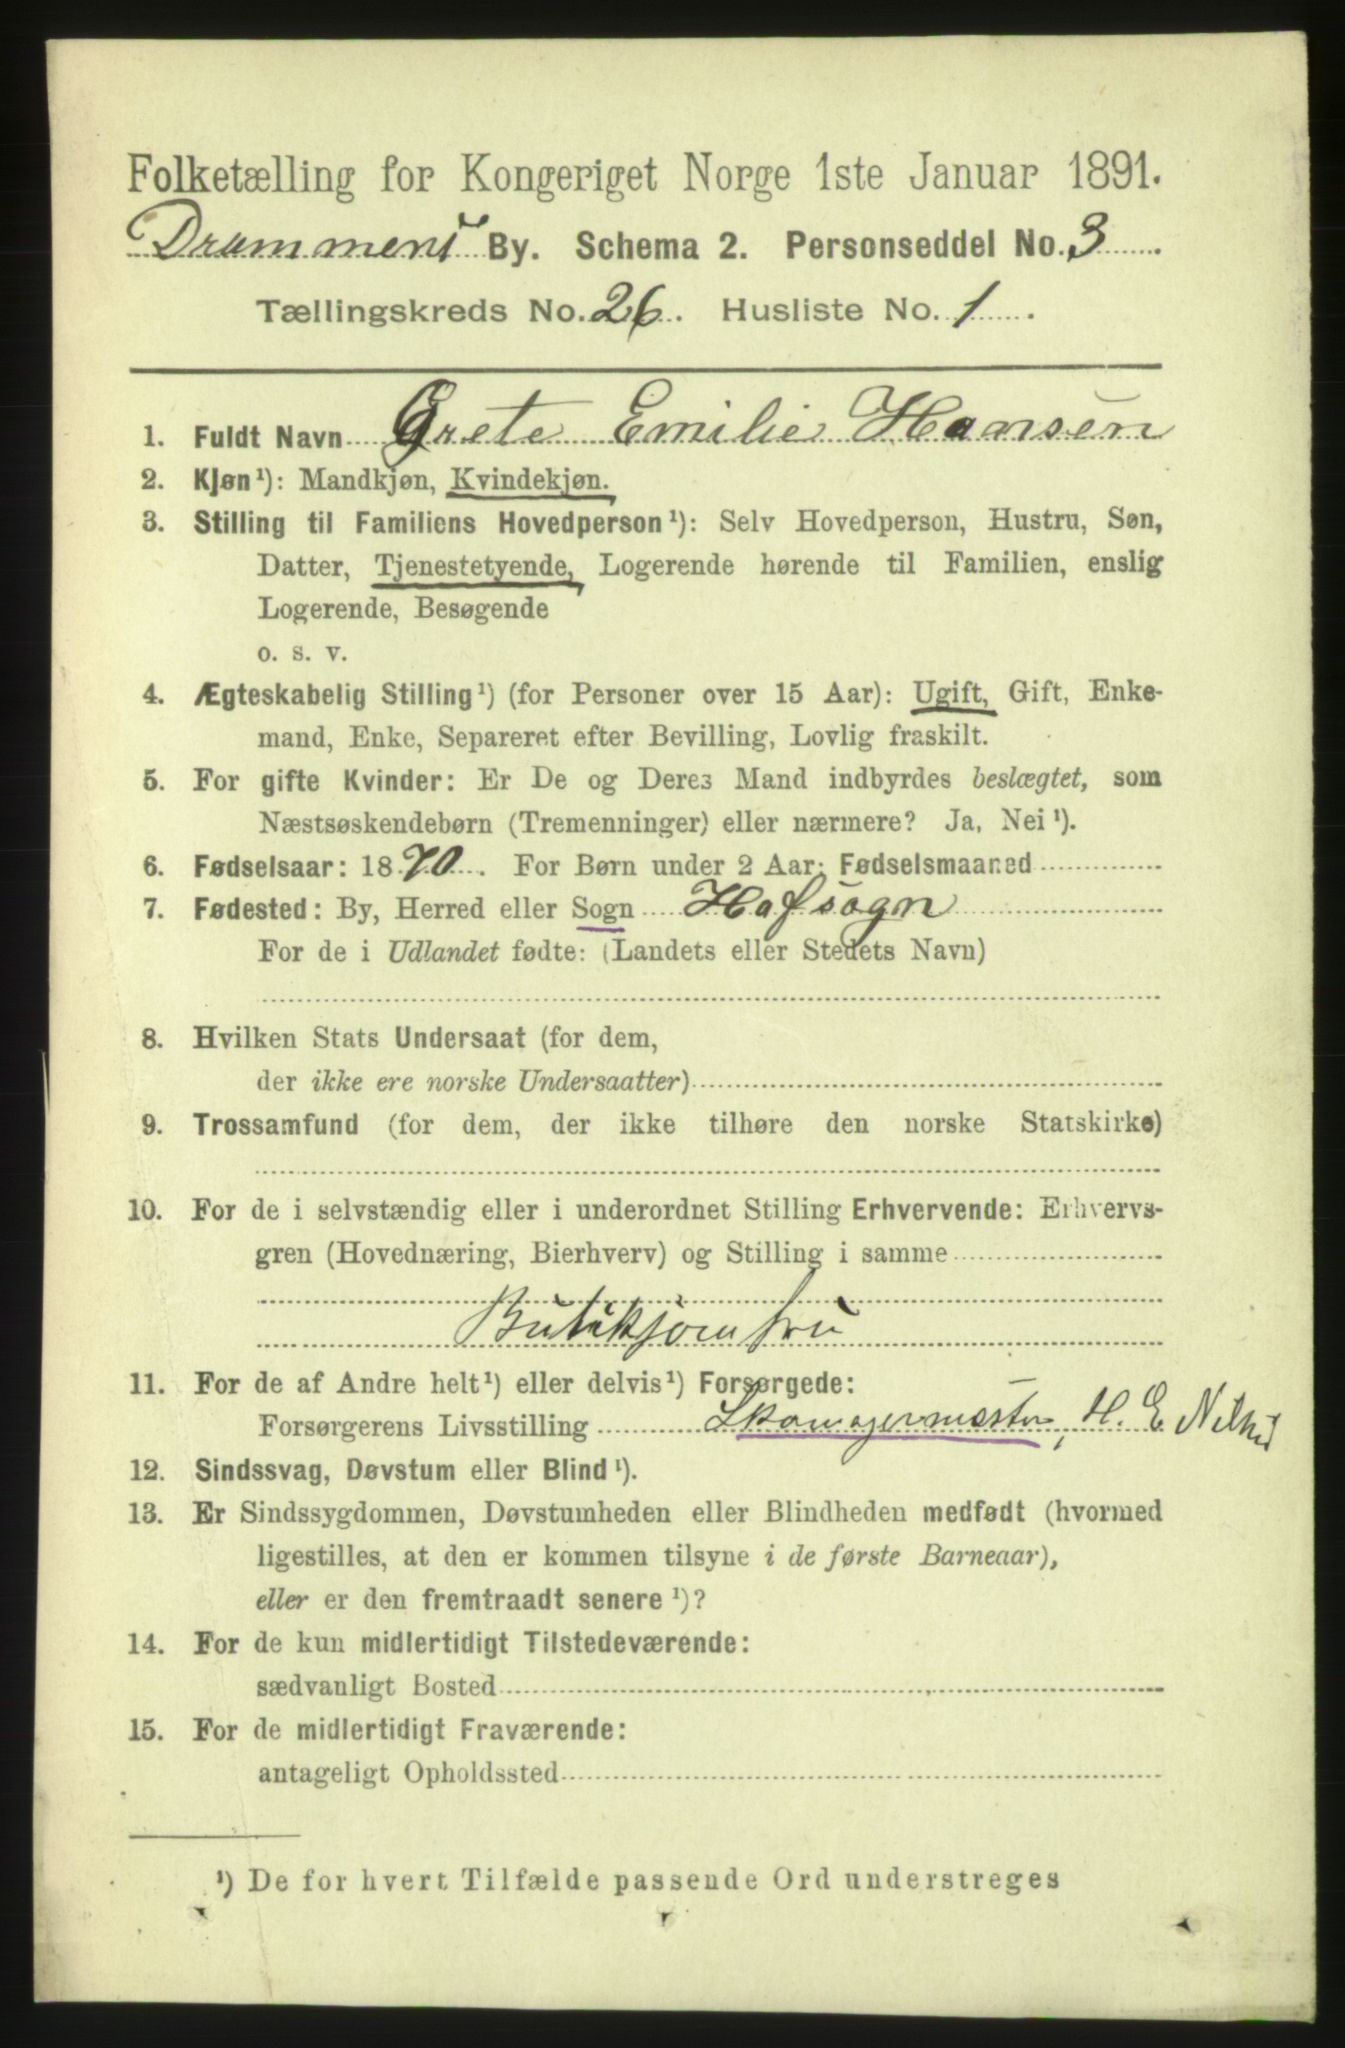 Folketælling for Kongeriget Norge 1ste Januar 1891.
Drammens By. Schema 2. Personseddel No. 3
Tællingskreds No. 26. Husliste No. 1
1. Fuldt Navn Grete Emilie Hansen
2. Kjøn¹): Mandkjøn, Kvindekjøn.
3. Stilling til Familiens Hovedperson¹): Selv Hovedperson, Hustru, Søn,
Datter, Tjenestetyende, Logerende hørende til Familien, enslig
Logerende, Besøgende
o. s. v.
4. Ægteskabelig Stilling¹) (for Personer over 15 Aar): Ugift, Gift, Enke-
mand, Enke, Separeret efter Bevilling, Lovlig fraskilt.
5. For gifte Kvinder: Er De og Deres Mand indbyrdes beslægtet, som
Næstsøskendebørn (Tremenninger) eller nærmere? Ja, Nei¹).
6. Fødselsaar: 1870. For Børn under 2 Aar: Fødselsmaaned
7. Fødested: By, Herred eller Sogn Hof sogn
For de i Udlandet fødte: (Landets eller Stedets Navn)
8. Hvilken Stats Undersaat (for dem,
der ikke ere norske Undersaatter)
9. Trossamfund (for dem, der ikke tilhøre den norske Statskirke)
10. For de i selvstændig eller i underordnet Stilling Erhvervende: Erhvervs-
gren (Hovednæring, Bierhverv) og Stilling i samme
Butikjomfru
11. For de af Andre helt¹) eller delvis¹) Forsørgede:
Forsørgerens Livsstilling Skomagermester, H. E
12. Sindssvag, Døvstum eller Blind¹).
13. Er Sindssygdommen, Døvstumheden eller Blindheden medfødt (hvormed
ligestilles, at den er kommen tilsyne i de første Barneaar),
eller er den fremtraadt senere¹)?
14. For de kun midlertidigt Tilstedeværende:
sædvanligt Bosted
15. For de midlertidigt Fraværende:
antageligt Opholdssted
¹) De for hvert Tilfælde passende Ord understreges